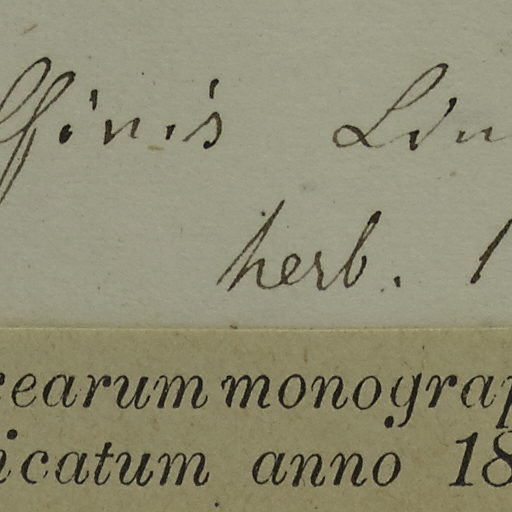 ffinis Lin
herb. 1
cearum monograp
icatum anno 18